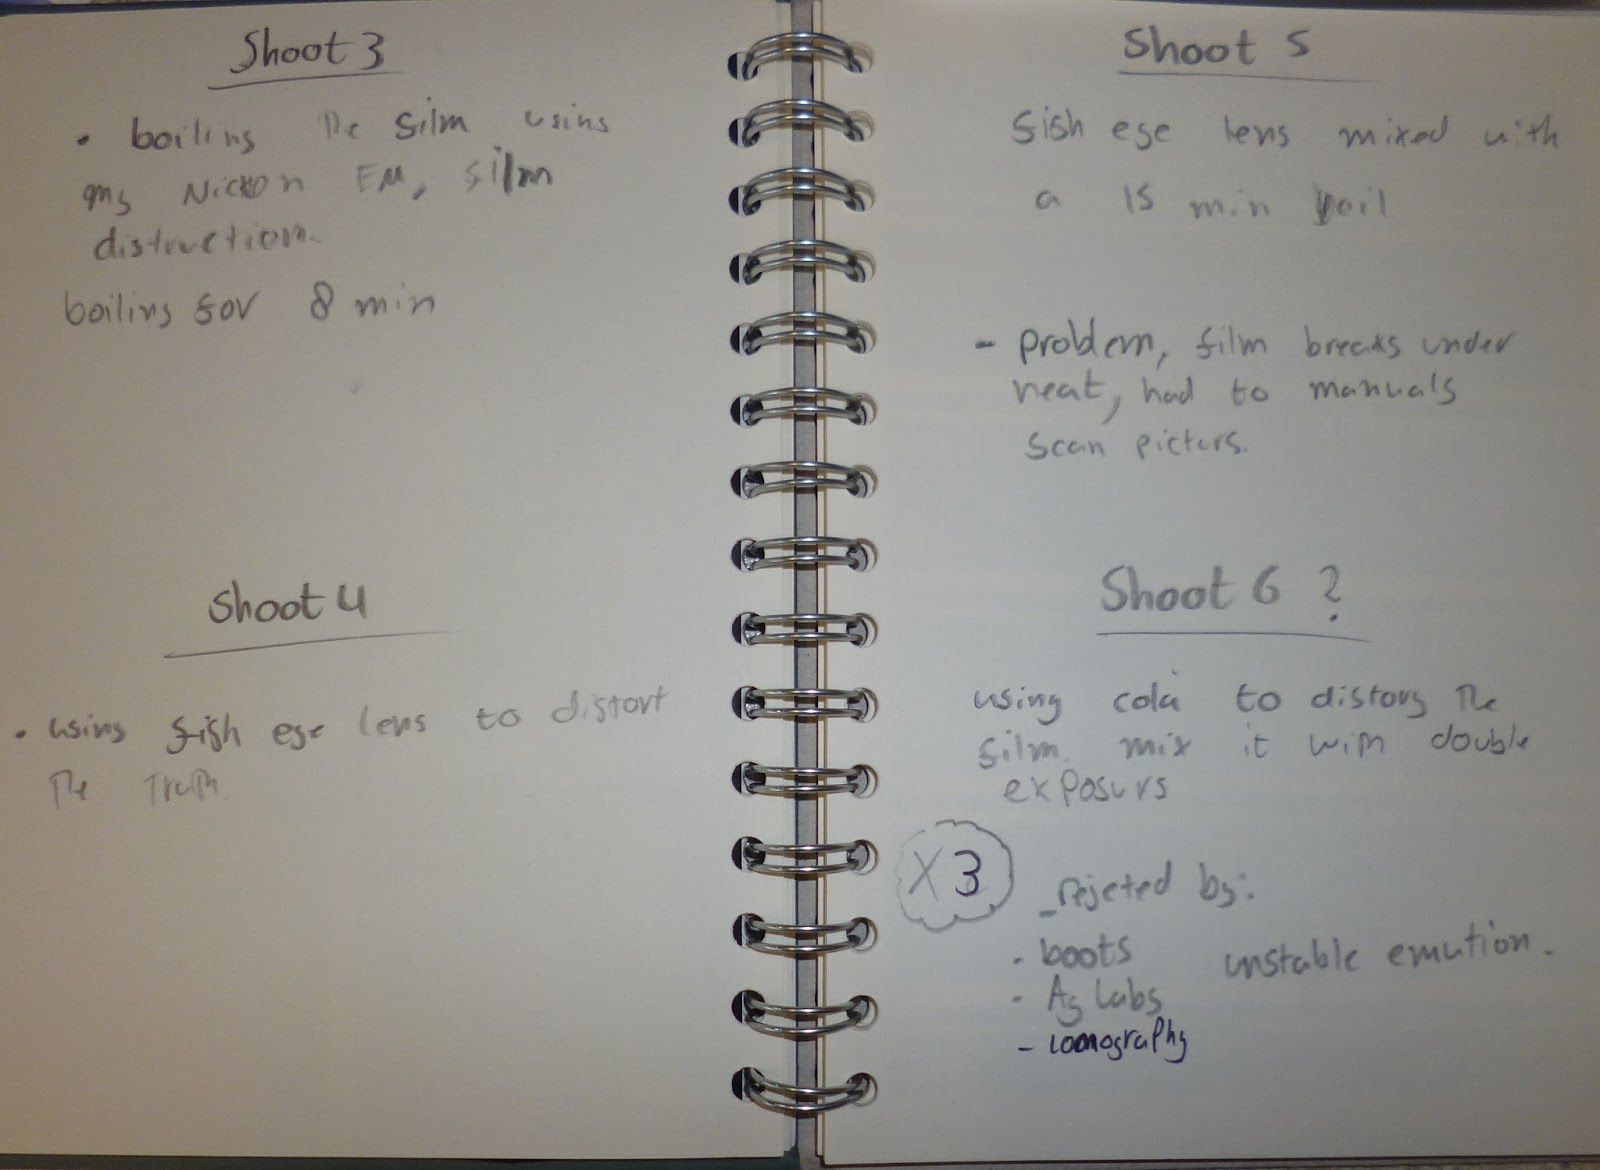 Shoot 3
• boiling the film using
my Nickon EM, film
distruction.
boiling for 8 min
Shoot 4
• using fish eye lens to distort
the truth.
Shoot 5
fish eye lens mixed with
a 15 min boil
- problem, film breaks under
heat, had to manualy
scan picturs.
Shoot 6 ?
using cola to distory the
film. mix it with double
exposurs
X3
- rejeted by:
• boots
unstable emution.
- Ag Labs
- lomography